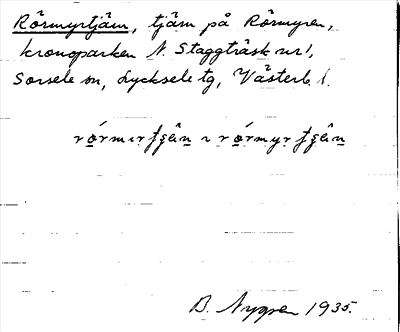 Rörmyrtjärn, tjärn på Rörmyren,
kronoparken N. Staggträsk nr 1,
Sorsele sn, Lycksele tg, Västerb. l.
B. Nygren 1935.